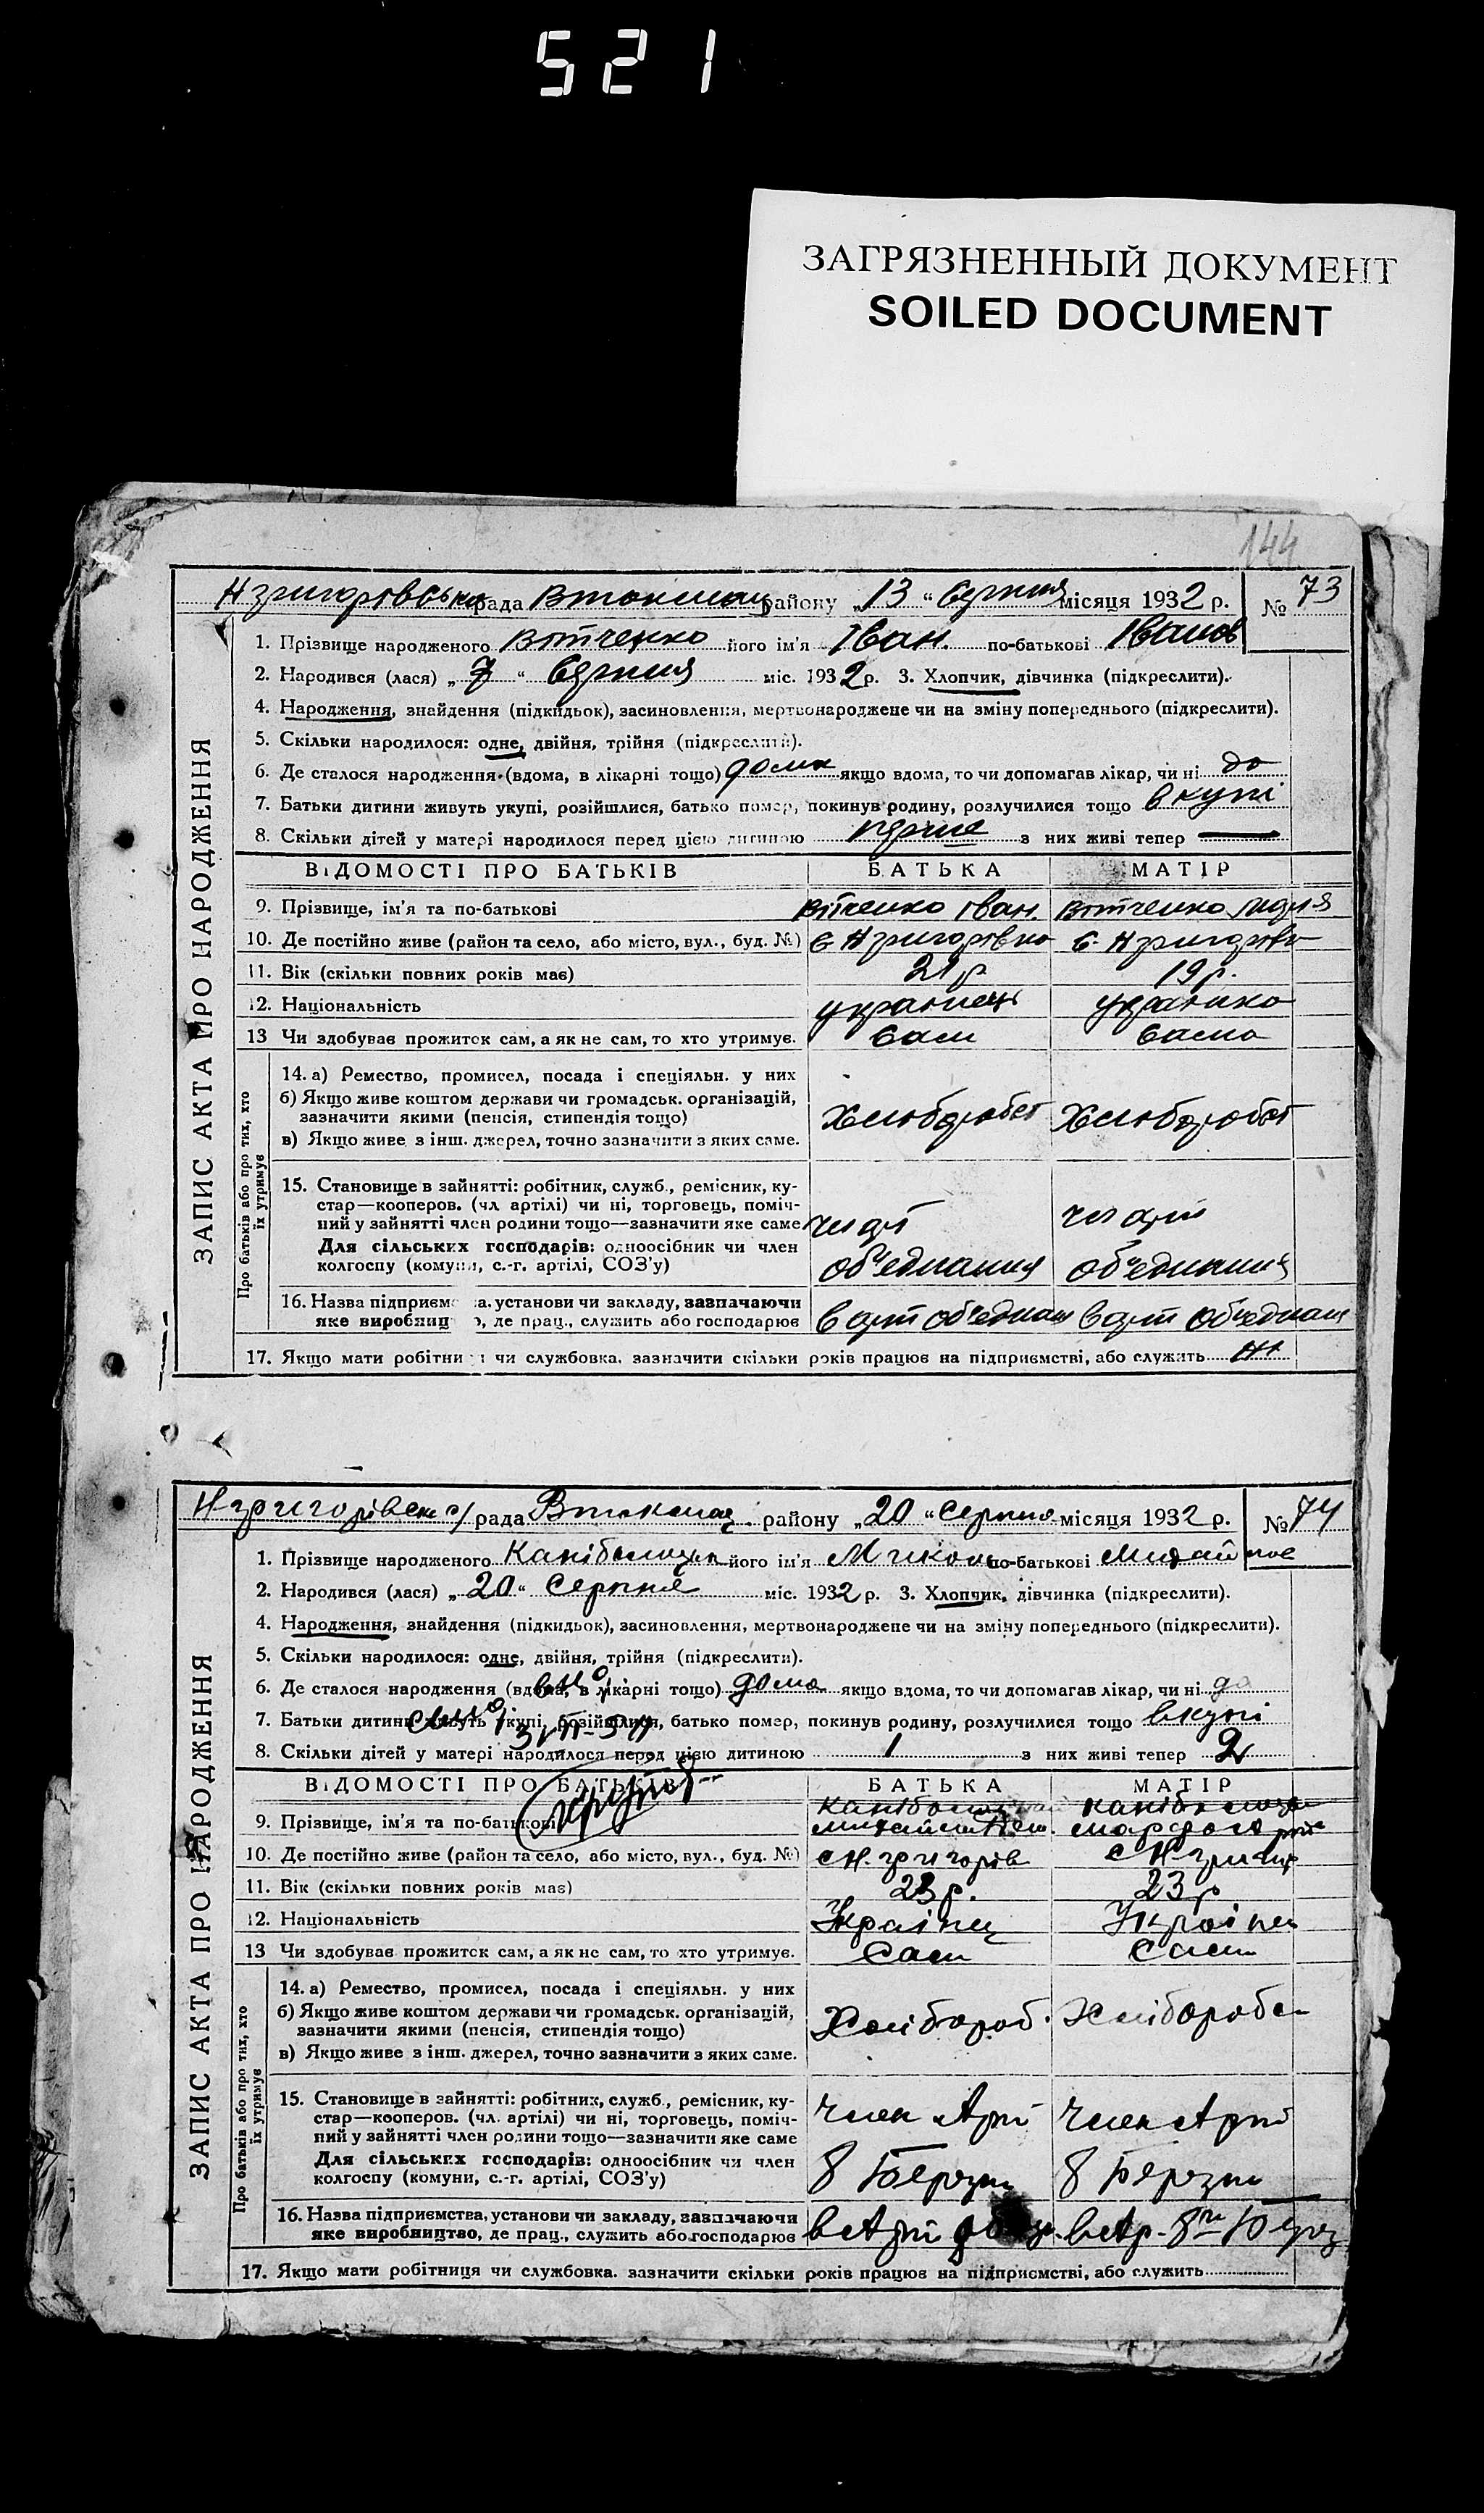 521
ЗАГРЯЗНЕННЫЙ ДОКУМЕНТ
SOILED DOCUMENT
144
ЗАПИС АКТА ПРО НАРОДЖЕННЯ
рада району „13“ Серпня місяця 1932 р. № 73
1. Прізвище народженого Вітченко його ім'я Іван. по-батькові Іванов
2. Народився (лася) „7“ Серпня міс. 1932 р. 3. Хлопчик, дівчинка (підкреслити).
4. Народження, знайдення (підкидьок), засиновлення, мертвонароджене чи на зміну попереднього (підкреслити).
5. Скільки народилося: одне, двійня, трійня (підкреслити).
6. Де сталося народження (вдома, в лікарні тощо) дома якщо вдома, то чи допомагав лікар, чи ні до
7. Батьки дитини живуть укупі, розійшлися, батько помер, покинув родину, розлучилися тощо вкупі
8. Скільки дітей у матері народилося перед цією дитиною перше з них живі тепер —
ВІДОМОСТІ ПРО БАТЬКІВ БАТЬКА МАТІР
9. Прізвище, ім'я та по-батькові Вітченко Іван. Вітченко
10. Де постійно живе (район та село, або місто, вул., буд. №) с Н григорівка с. Н григорівка
11. Вік (скільки повних років має) 21 р 19 р.
12. Національність українець українка
13 Чи здобував прожиток сам, а як не сам, то хто утримує. сам сама
Про батьків або про тих, хто їх утримує
14. а) Ремество, промисел, посада і спеціяльн. у них
б) Якщо живе коштом держави чи громадськ. організацій,
зазначити якими (пенсія, стипендія тощо) Хлібороб Хлібороб
в) Якщо живе з інш. джерел, точно зазначити з яких саме.
15. Становище в зайнятті: робітник, служб., ремісник, ку-
стар—кооперов. (чл. артілі) чи ні, торговець, поміч-
ний у зайнятті член родини тощо—зазначити яке саме
Для сільських господарів: одноосібник чи член
колгоспу (комуни, с.-г. артілі, СОЗ'у) об'єднання об'єднання
16. Назва підприємства, установи чи закладу, зазначаючи
яке виробництво, де прац., служить або господарює в арт об'єднан в арт об'єднан
17. Якщо мати робітниця чи службовка, зазначити скільки років працює на підприємстві, або служить ні
ЗАПИС АКТА ПРО НАРОДЖЕННЯ
рада району „20“ Серпня місяця 1932 р. № 74
1. Прізвище народженого його ім'я Микола по-батькові Михайлов
2. Народився (лася) „20“ Серпня міс. 1932 р. 3. Хлопчик, дівчинка (підкреслити).
4. Народження, знайдення (підкидьок), засиновлення, мертвонароджене чи на зміну попереднього (підкреслити).
5. Скільки народилося: одне, двійня, трійня (підкреслити).
6. Де сталося народження (вдома, в лікарні тощо) дома якщо вдома, то чи допомагав лікар, чи ні до
7. Батьки дитини живуть укупі, розійшлися, батько помер, покинув родину, розлучилися тощо вкупі
8. Скільки дітей у матері народилося перед цією дитиною 1 з них живі тепер 2
ВІДОМОСТІ ПРО БАТЬКІВ БАТЬКА МАТІР
9. Прізвище, ім'я та по-батькові
10. Де постійно живе (район та село, або місто, вул., буд. №) с Н. григорів с Н.
11. Вік (скільки повних років має) 23 р. 23 р
12. Національність Українц Українц
13 Чи здобував прожиток сам, а як не сам, то хто утримує. Сам Сам
Про батьків або про тих, хто їх утримує
14. а) Ремество, промисел, посада і спеціяльн. у них
б) Якщо живе коштом держави чи громадськ. організацій,
зазначити якими (пенсія, стипендія тощо) Хлібороб. Хлібороб
в) Якщо живе з інш. джерел, точно зазначити з яких саме.
15. Становище в зайнятті: робітник, служб., ремісник, ку-
стар—кооперов. (чл. артілі) чи ні, торговець, поміч- член Арті член Арті
ний у зайнятті член родини тощо—зазначити яке саме
Для сільських господарів: одноосібник чи член
колгоспу (комуни, с.-г. артілі, СОЗ'у) 8 Березн 8 Березн
16. Назва підприємства, установи чи закладу, зазначаючи
яке виробництво, де прац., служить або господарює в Арті в Ар.
17. Якщо мати робітниця чи службовка, зазначити скільки років працює на підприємстві, або служить